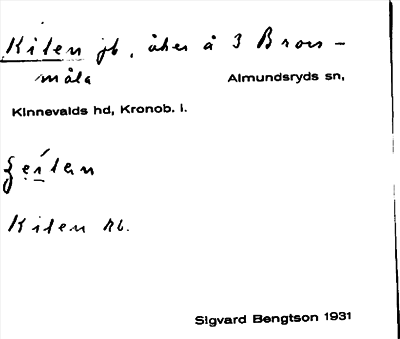 Kilen jb, åker å 3 Brons-
måla
Almundsryds sn,
Kinnevalds hd, Kronob. l.
Kilen Rb.
Sigvard Bengtson 1931